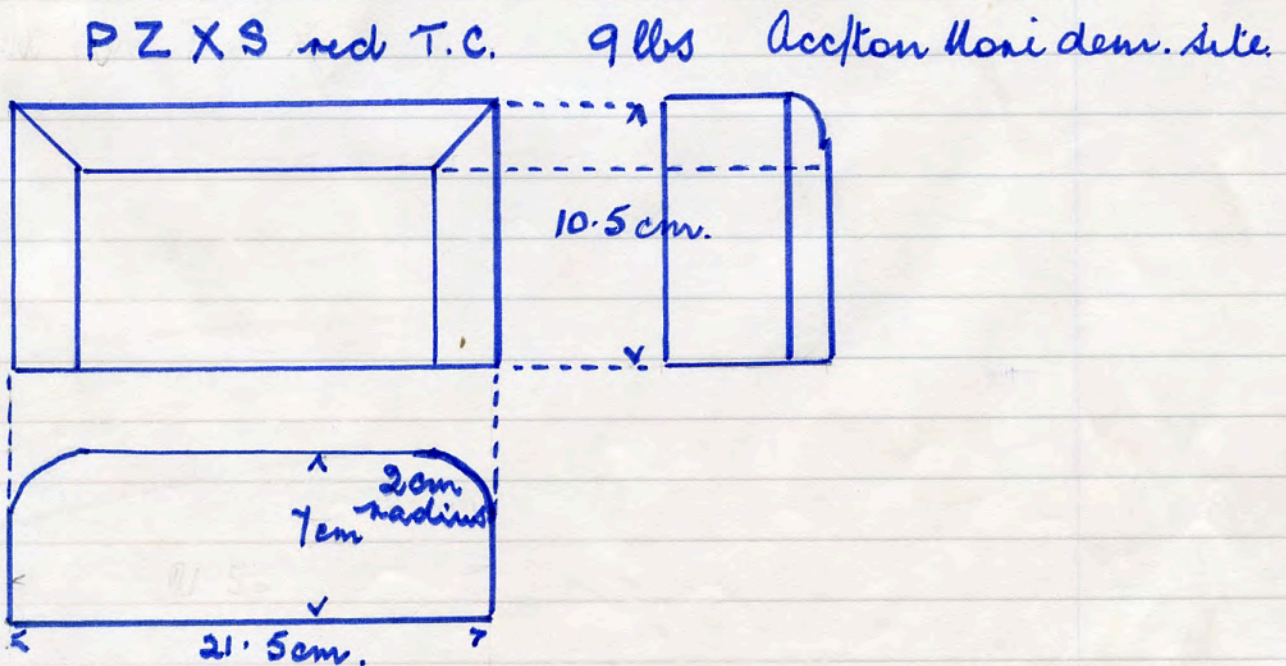 PZXS red T.C. 9 lbs Acc/ton dem. site.
10.5 cm.
2cm
radius
7cm
21.5cm.